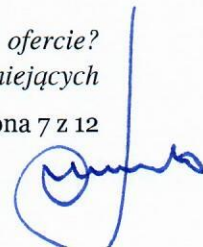 ofercie?
niejących
ona 7 z 12